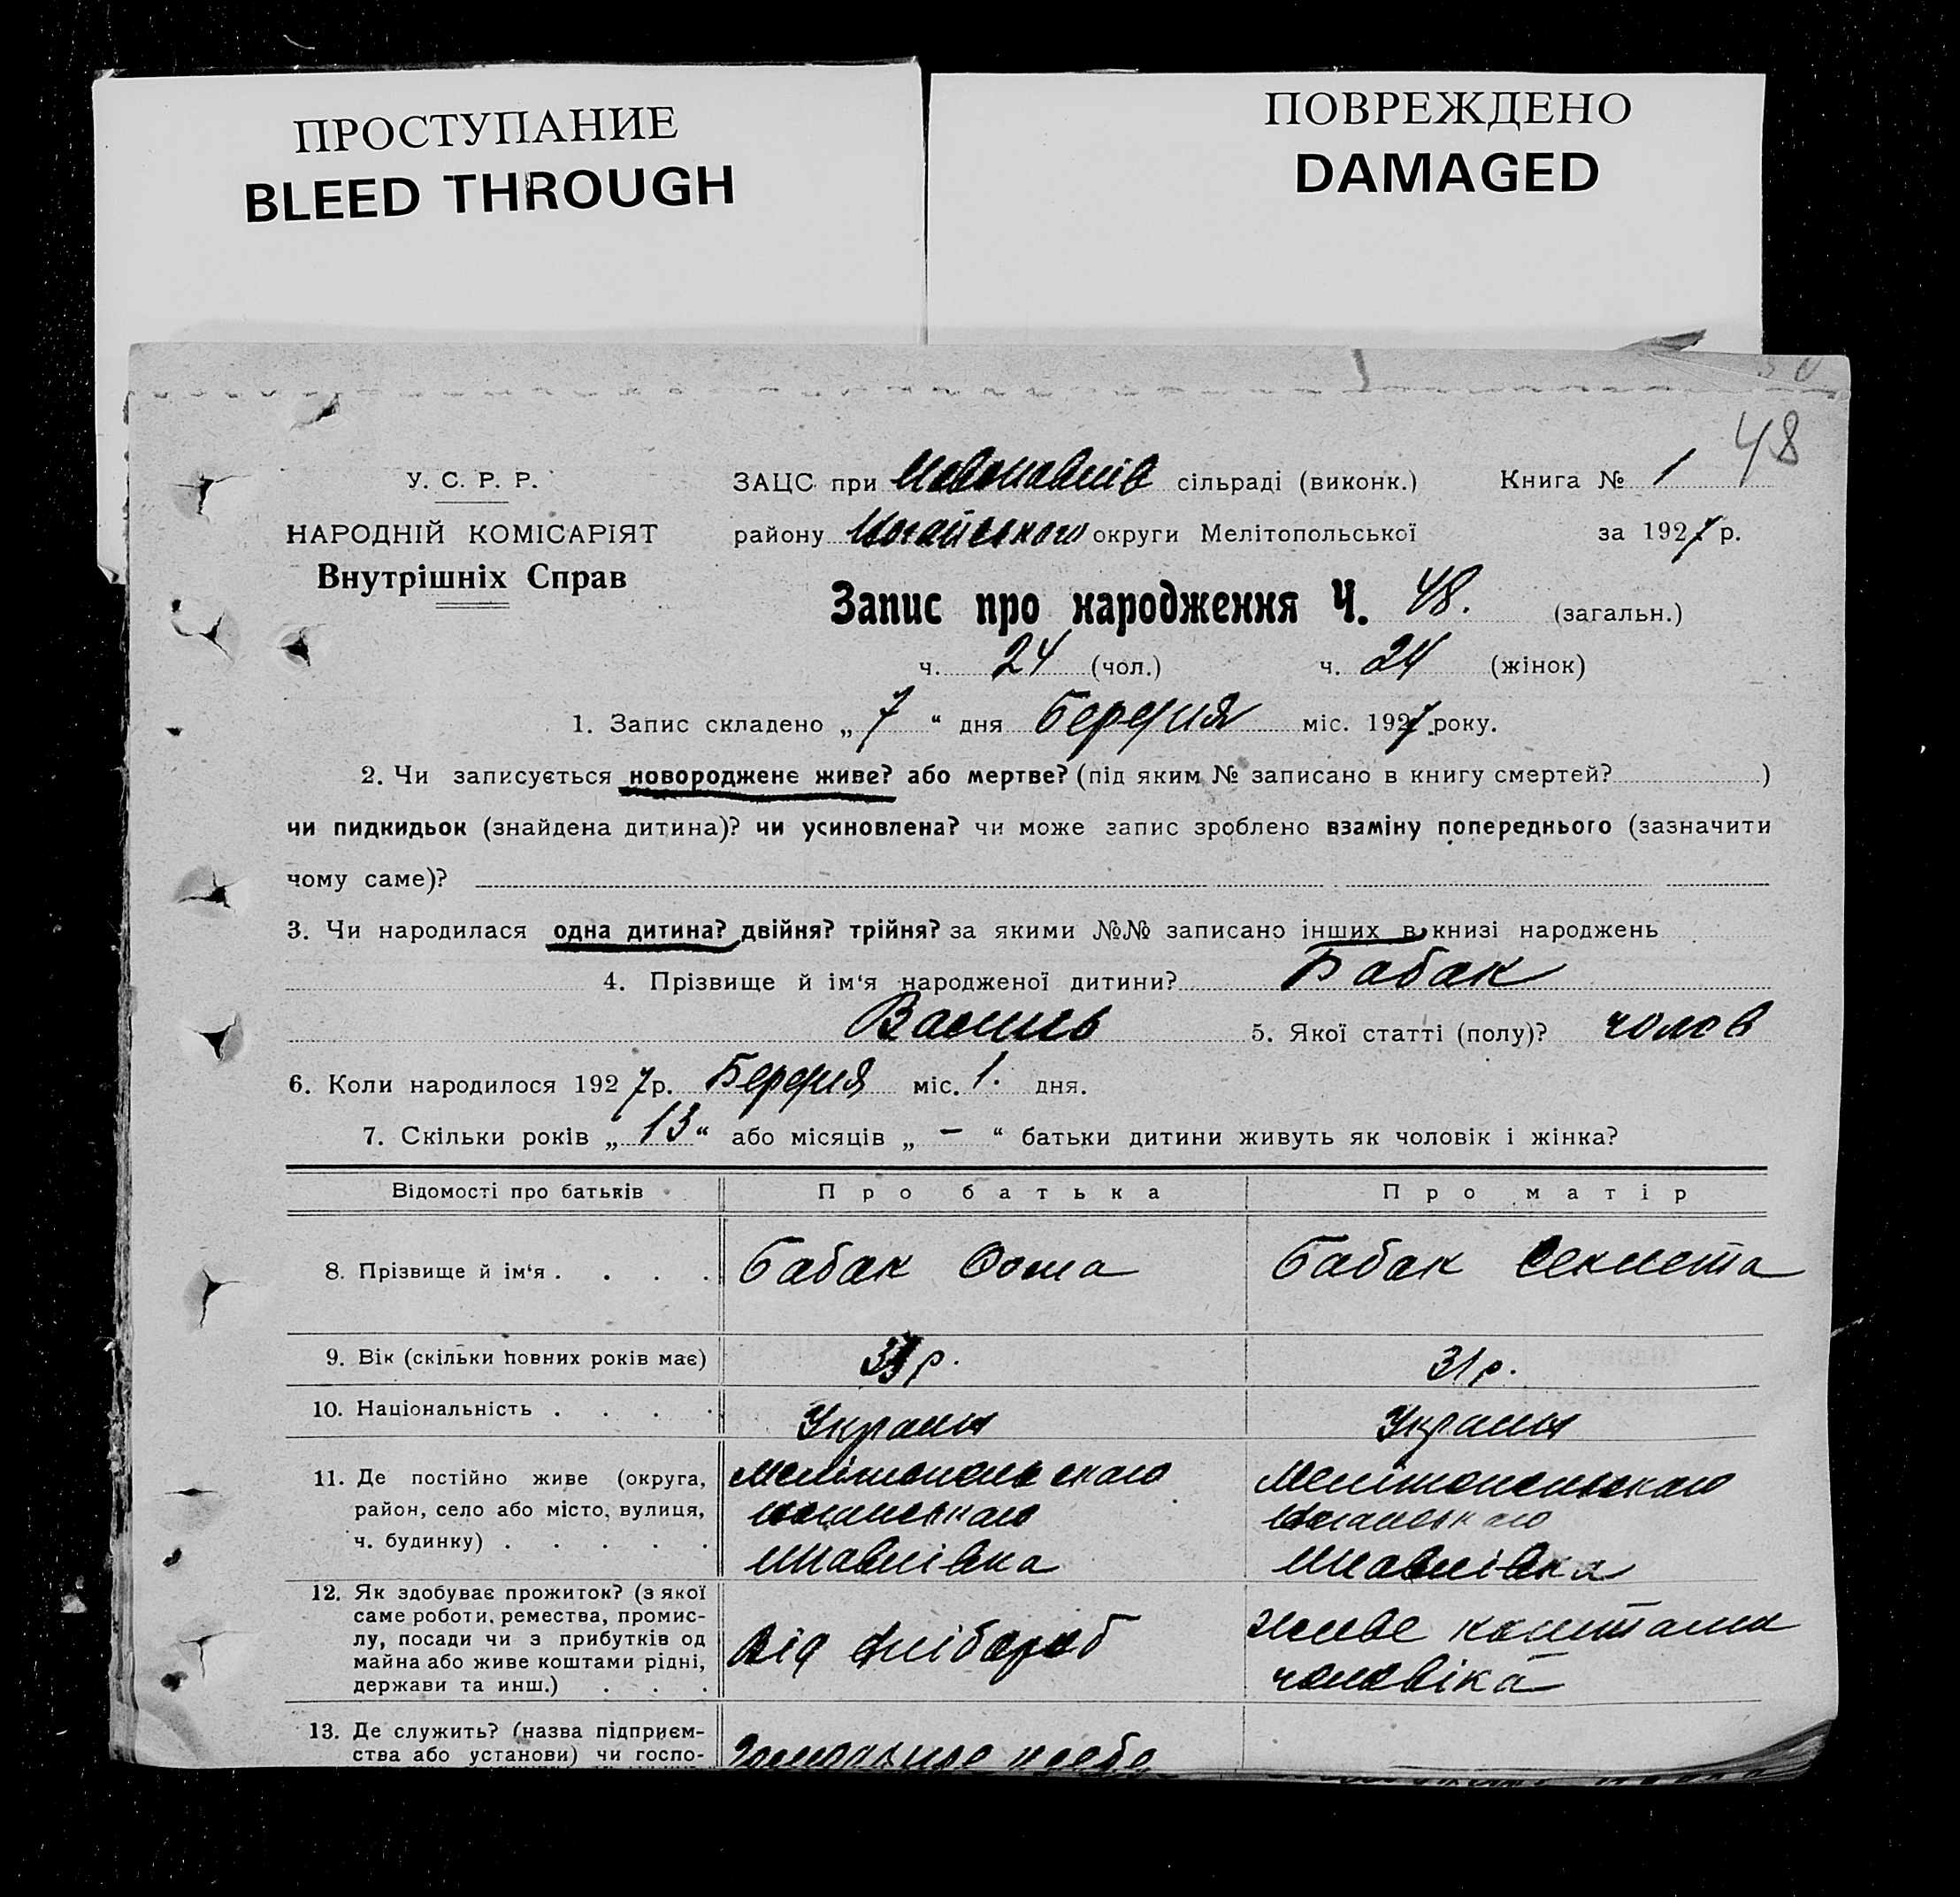 ПРОСТУПАНИЕ
BLEED THROUGH
ПОВРЕЖДЕНО
DAMAGED
48
У. С. Р. Р.
НАРОДНІЙ КОМІСАРІЯТ
Внутрішніх Справ
ЗАЦС при сільраді (виконк.) Книга № 1
району Ногайського округи Мелітопольської за 1927 р.
Запис про народження Ч. 48. (загальн.)
ч. 24 (чол.) ч. 24 (жінок)
1. Запис складено „ 7 “ дня Березня міс. 1927 року.
2. Чи записується новороджене живе? або мертве? (під яким № записано в книгу смертей? )
чи пидкидьок (знайдена дитина)? чи усиновлена? чи може запис зроблено взаміну попереднього (зазначити
чому саме)?
3. Чи народилася одна дитина? двійня? трійня? за якими №№ записано інших в книзі народжень
4. Прізвище й ім‘я народженої дитини? Бабак
Василь 5. Якої статті (полу)? чолов
6. Коли народилося 1927 р. Березня міс. 1. дня.
7. Скільки років „ 13 “ або місяців „ — “ батьки дитини живуть як чоловік і жінка?
Відомості про батьків Про батька Про матір
8. Прізвище й ім‘я . . . . Бабак Хома Бабак Секлета
9. Вік (скільки повних років має) р. 31 р.
10. Національність . . . . Україн Україн
11. Де постійно живе (округа, Мелітопольського Мелітопольського
район, село або місто, вулиця, Ногайського Ногайського
ч. будинку) . . . . .
12. Як здобуває прожиток? (з якої
саме роботи, ремества, промис-
лу, посади чи з прибутків од Від хлібороб живе коштами
майна або живе коштами рідні, чоловіка
держави та инш.) . . .
13. Де служить? (назва підприєм-
ства або установи) чи госпо-